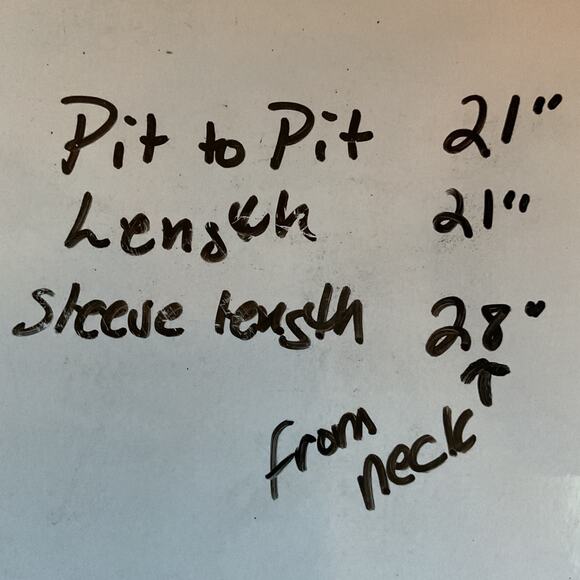 Pit to Pit 21"
Length 21"
Sleeve length 28"
↑
from neck